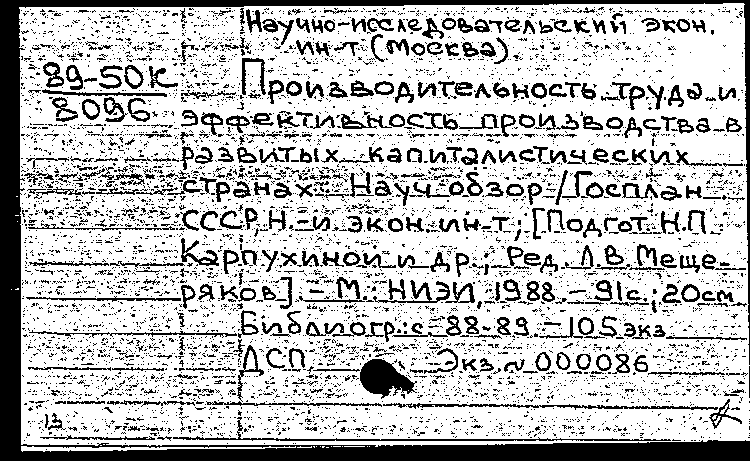 Научно-исследовательский экон.
ин-т (Москва)
89-50К
8096
Производительность труда и
эффективность производства в
развитых капиталистических
странах: Науч. обзор / Госплан
СССР, Н.-и. экон. ин-т; [Подгот. Н.П.
Карпухиной и др.; Ред. Л.В. Меще-
ряков]. - М.: НИЭИ, 1988. - 91с.; 20см
Библиогр.: с. 88-89. - 105 экз
ДСП Экз. № 000086
13